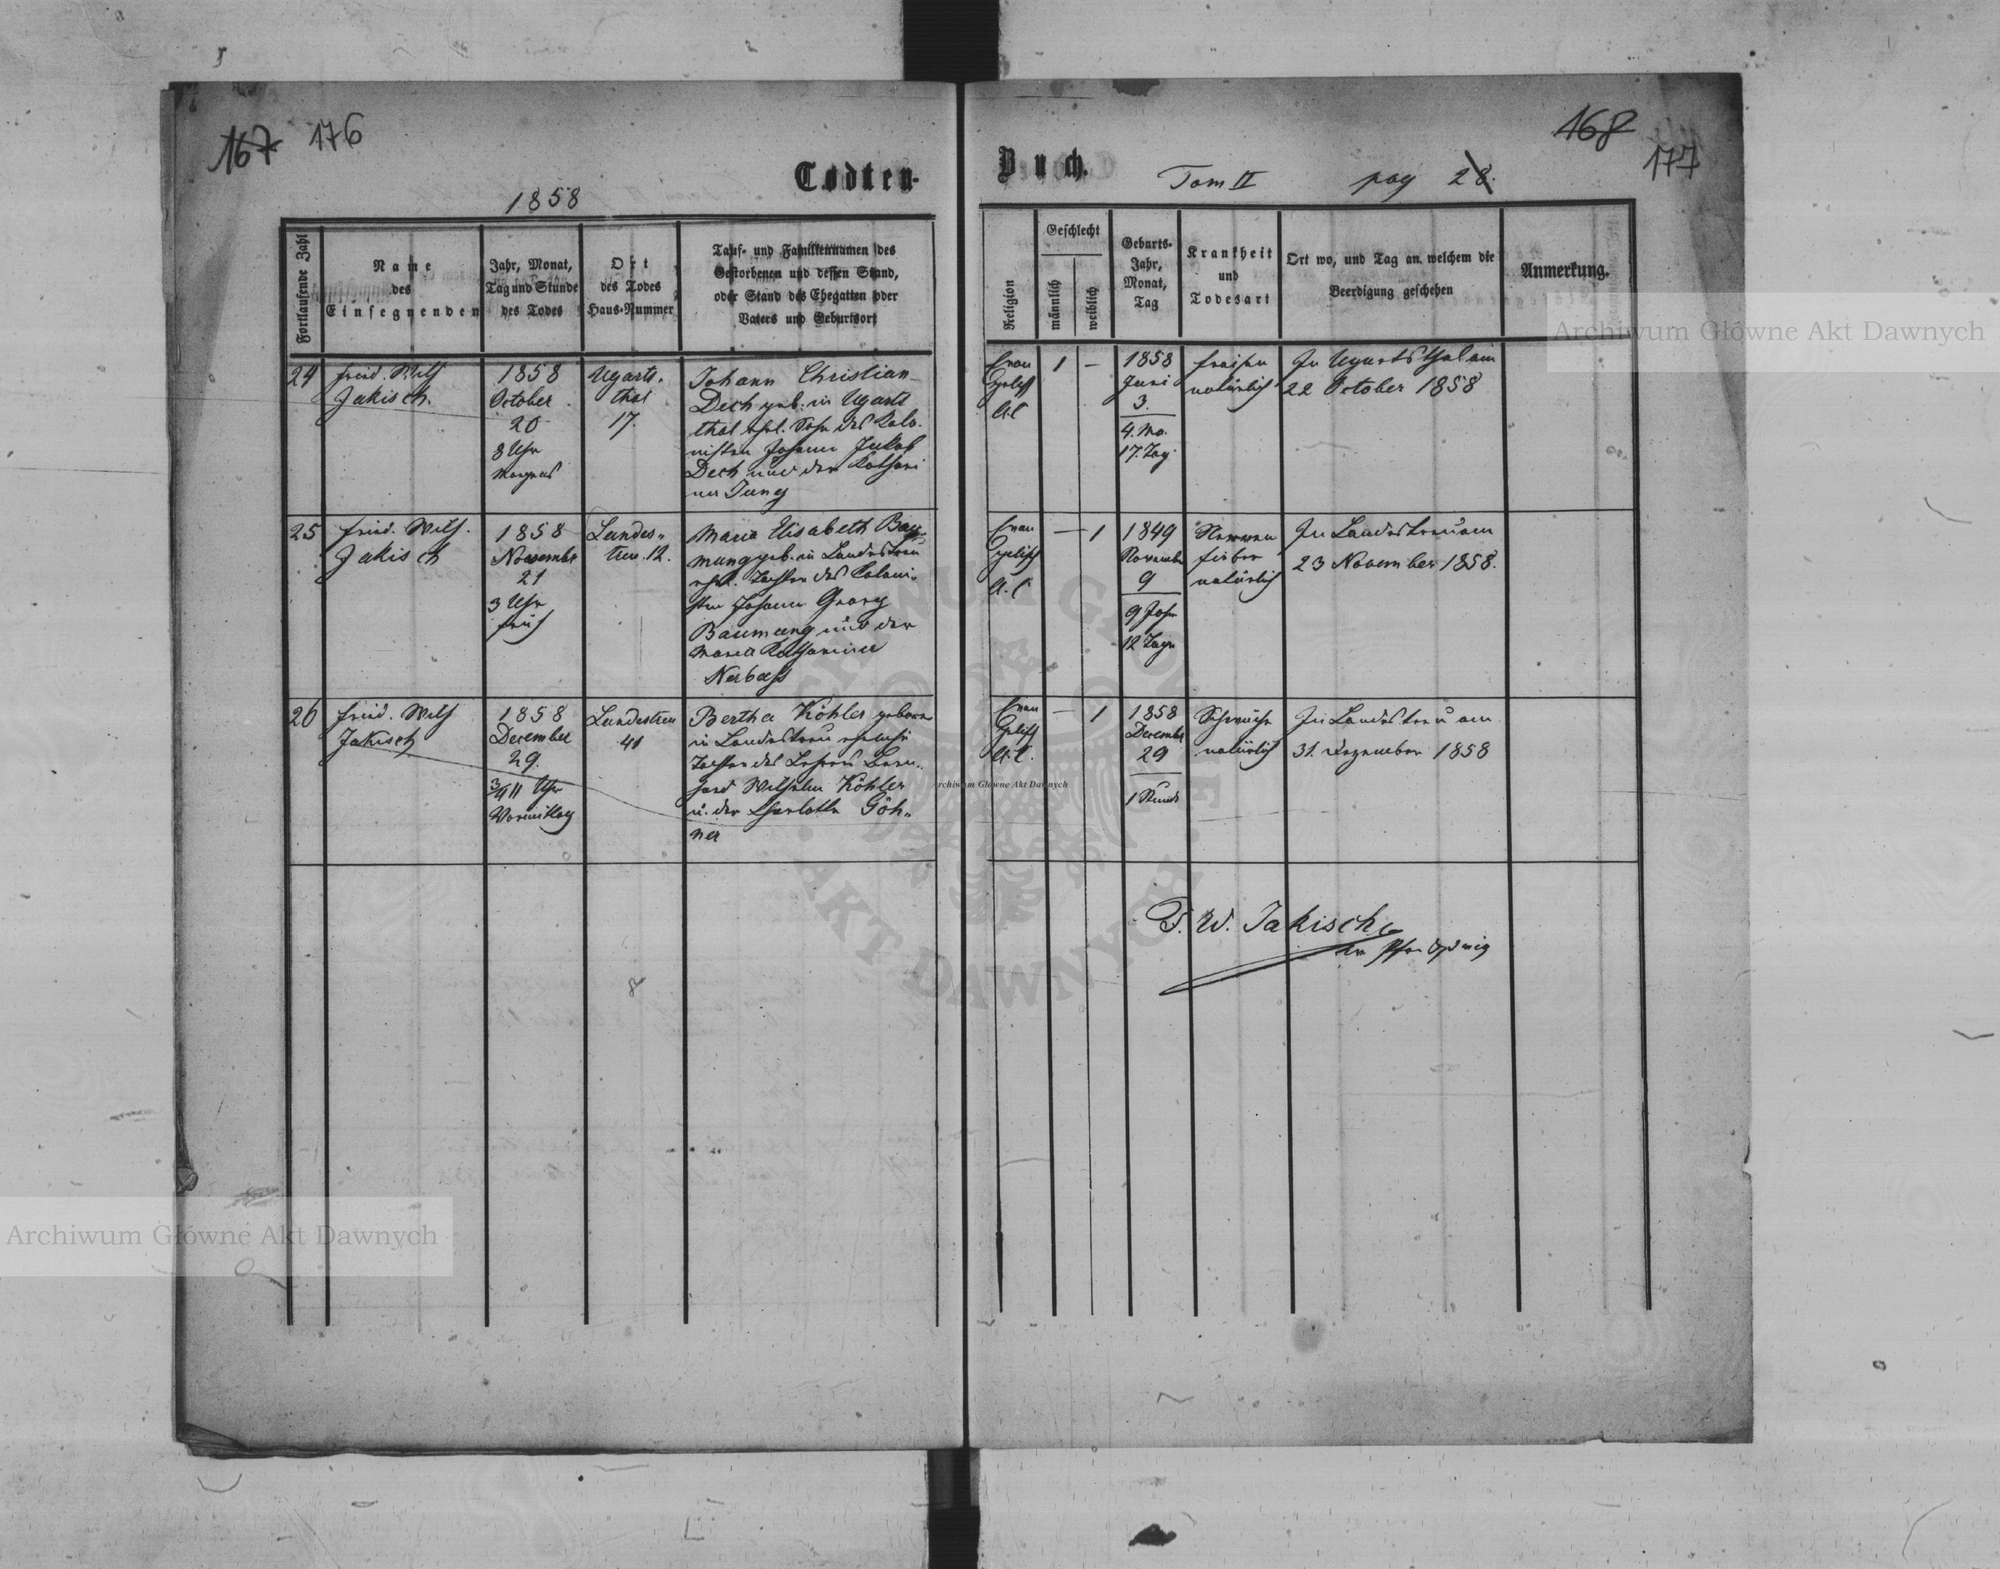 167 176
168
177
Todten-
Buch.
Tom II pag 28.
1858
Fortlaufende Zahl
Name
des
Einsegnenden
Jahr, Monat,
Tag und Stunde
des Todes
Ort
des Todes
Haus-Nummer
Tauf- und Familiennamen des
Gestorbenen und dessen Stand,
oder Stand des Ehegatten oder
Vaters und Geburtsort
Religion
Geschlecht
männlich
weiblich
Geburts-
Jahr,
Monat,
Tag
Krankheit
und
Todesart
Ort wo, und Tag an welchem die
Beerdigung geschehen
Anmerkung.
24
Fried. Wilh
Jakisch.
1858
October
20
8 Uhr
Morgens
Ugarts-
thal
17.
Johann Christian
Dech geb: in Ugarts
thal ehel. Sohn des Kolo-
nisten Johann Jakob
Dech und der Kathari
na Jung
Evan
gelisch
A.C
1
—
1858
Juni
3.
4. Mo.
17. Tag
Fraisen
natürlich
In Ugartsthal am
22 October 1858
25
Fried. Wilh.
Jakisch
1858
November
21
3 Uhr
früh
Landes-
treu. 12.
Maria Elisabeth Bau-
mung geb. in Landestreu
ehel. Tochter des Koloni-
sten Johann Georg
Baumung und der
Maria Katharina
Nerbass
Evan
gelisch
A. C
—
1
1849
November
9
9 Jahr
12 Tage
Nerven
fieber
natürlich
In Landestreu am
23 November 1858.
26
Fried. Wilh
Jakisch
1858
December
29.
3/4 11 Uhr
Vormittag
Landestreu
41
Bertha Köhler geboren
in Landestreu eheliche
Tochter des Lehrers Bern-
hard Wilhelm Köhler
u. der Charlotte Göh-
ner
Evan
gelisch
A.C.
—
1
1858
December
29
1 Stunde
Schwäche
natürlich
In Landestreu am
31. Dezember 1858
F. W. Jakisch
8
Archiwum Główne Akt Dawnych
Archiwum Główne Akt Dawnych
Archiwum Główne Akt Dawnych
ARCHIWUM GŁÓWNE
AKT DAWNYCH